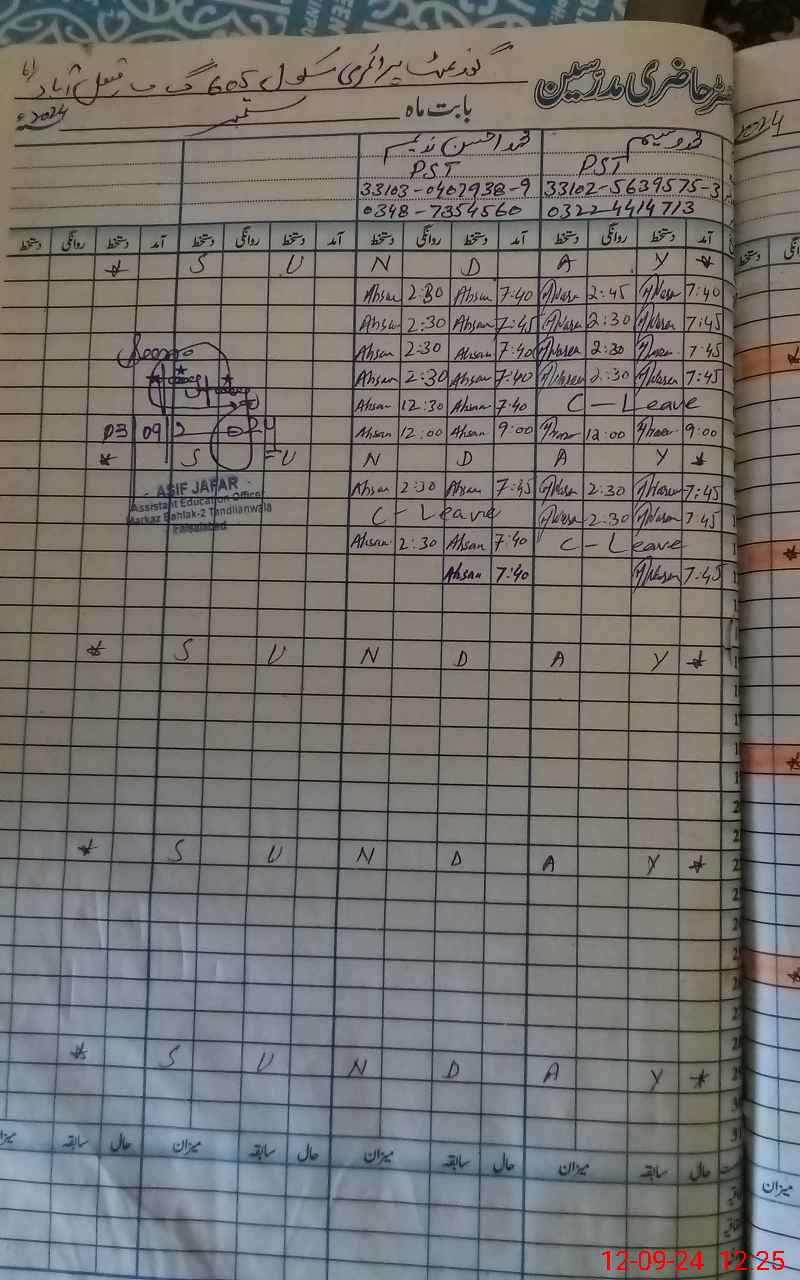 رجسٹر حاضری مدرسین
گورنمنٹ پرائمری سکول 605 گ ب فیصل آباد
بابت ماہ ستمبر 2024ء
محمد وسیم
محمد احسن ندیم
PST
PST
33102-5639575-3
33103-0407938-9
0322-4414713
0348-7354560
آمد دستخط روانگی دستخط آمد دستخط روانگی دستخط آمد دستخط روانگی دستخط آمد دستخط روانگی دستخط
* S U N D A Y *
Ahsan 2:30 Ahsan 7:40 2:45 7:40
Ahsan 2:30 Ahsan 7:45 2:30 7:45
Ahsan 2:30 Ahsan 7:40 2:30 7:45
Ahsan 2:30 Ahsan 7:40 2:30 7:45
Ahsan 12:30 Ahsan 7:40 C - Leave
Ahsan 12:00 Ahsan 9:00 12:00 9:00
03 09 2024
* S U N D A Y *
Ahsan 2:30 Ahsan 7:45 2:30 7:45
C - Leave 2:30 7:45
Ahsan 2:30 Ahsan 7:40 C - Leave
Ahsan 7:40 7:45
ASIF JAFAR
Assistant Education Officer
Markaz Bahlak-2 Tandlianwala
Faisalabad
* S U N D A Y *
* S U N D A Y *
* S U N D A Y *
حال سابقہ میزان حال سابقہ میزان حال سابقہ میزان حال سابقہ میزان
2024
میزان
12-09-24 12:25